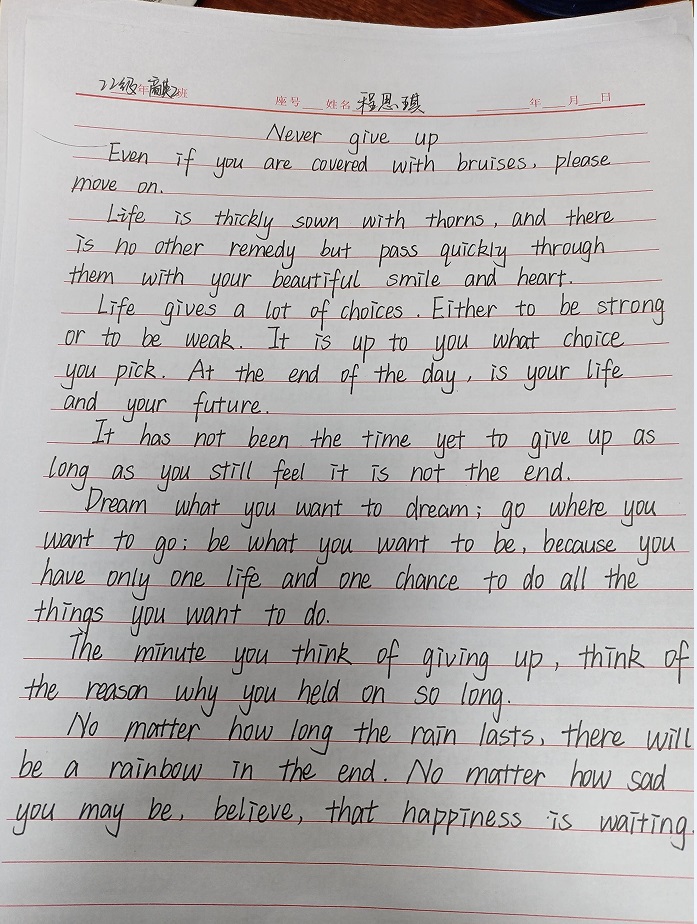 22级年商英2班 座号 姓名 程恩琪 年 月 日
Never give up
Even if you are covered with bruises, please
move on.
Life is thickly sown with thorns, and there
is no other remedy but pass quickly through
them with your beautiful smile and heart.
Life gives a lot of choices. Either to be strong
or to be weak. It is up to you what choice
you pick. At the end of the day, is your life
and your future.
It has not been the time yet to give up as
long as you still feel it is not the end.
Dream what you want to dream; go where you
want to go; be what you want to be, because you
have only one life and one chance to do all the
things you want to do.
The minute you think of giving up, think of
the reason why you held on so long.
No matter how long the rain lasts, there will
be a rainbow in the end. No matter how sad
you may be, believe, that happiness is waiting.